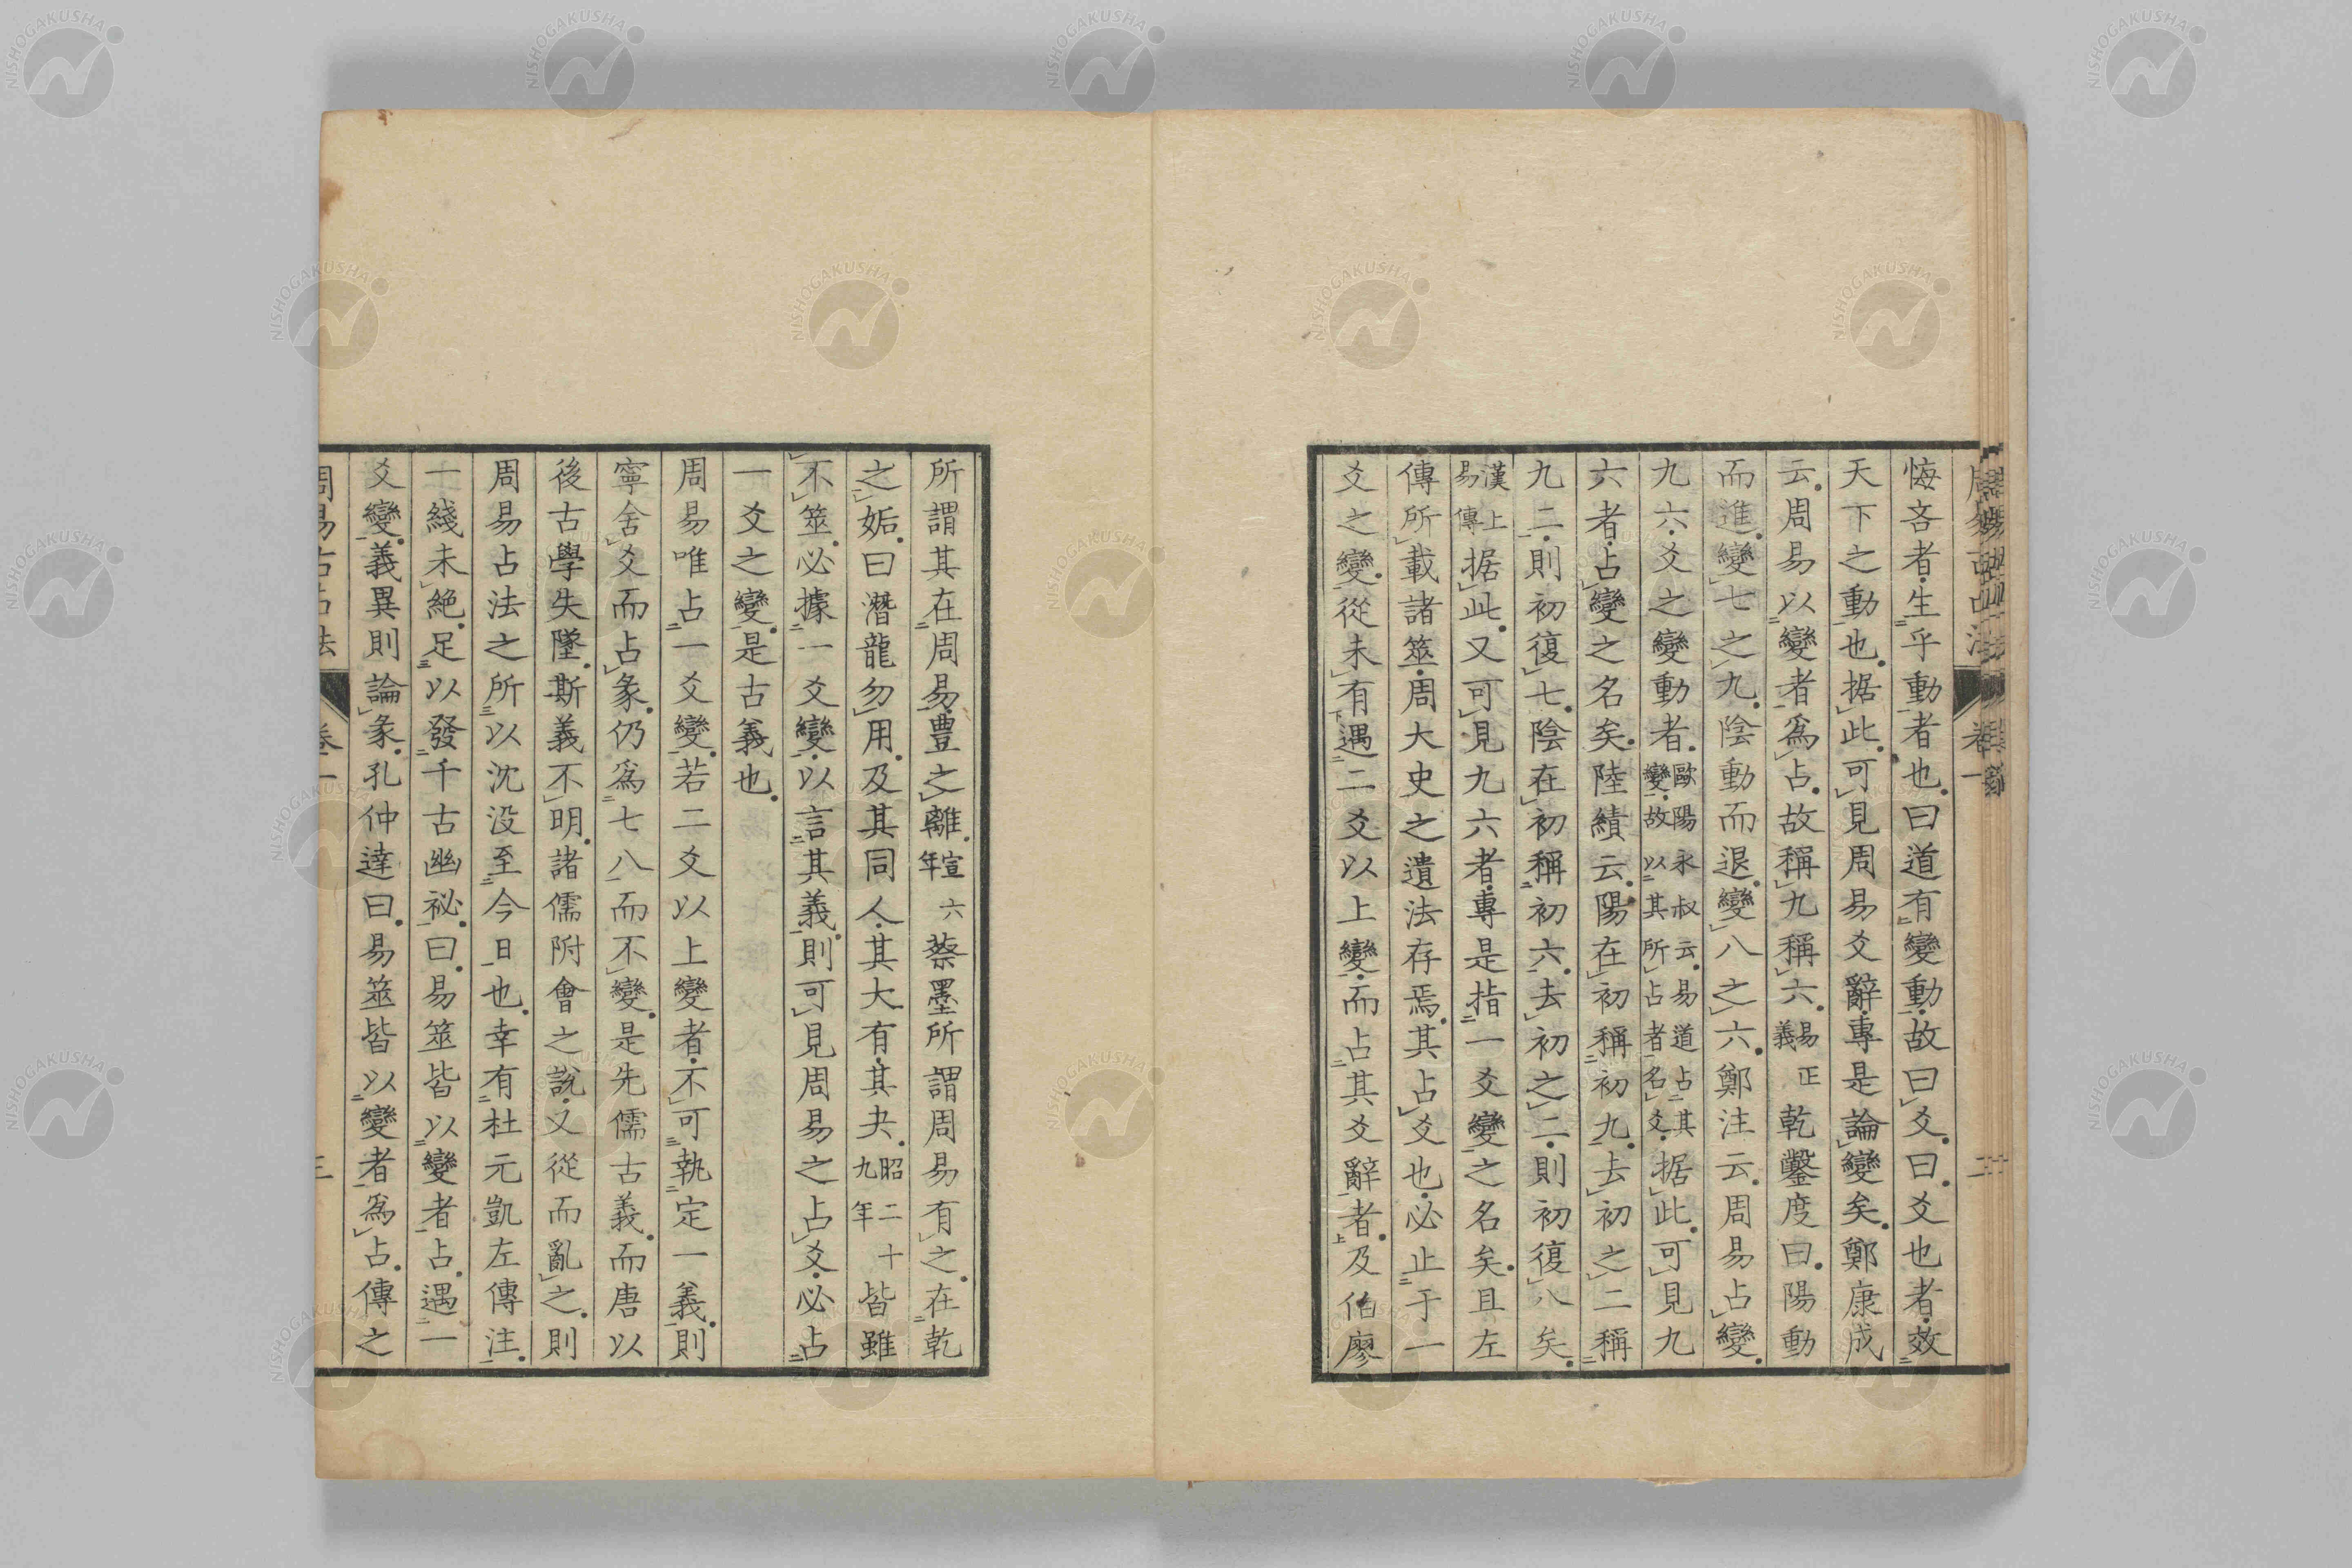 悔吝者生乎動者也曰道有變動故曰爻曰爻也者效
天下之動也据此可見周易爻辭專是論變矣鄭康成
云周易以變者爲占故稱九稱六易正義乾鑿度曰陽動
而進變七之九陰動而退變八之六鄭注云周易占變
九六爻之變動者歐陽永叔云易道占其變故以其所占者名爻据此可見九
六者占變之名矣陸績云陽在初稱初九去初之二稱
九二則初復七陰在初稱初六去初之二則初復八矣
漢上易傳据此又可見九六者專是指一爻變之名矣且左
傳所載諸筮周大史之遺法存焉其占爻也必止于一
爻之變從未有遇二爻以上變而占其爻辭者及伯廖
所謂其在周易豊之離宣六年蔡墨所謂周易有之在乾
之姤曰潛龍勿用及其同人其大有其夬昭二十九年皆雖
不筮必據一爻變以言其義則可見周易之占爻必占
一爻之變是古義也
周易唯占一爻變若二爻以上變者不可執定一義則
寧舍爻而占彖仍爲七八而不變是先儒古義而唐以
後古學失墜斯義不明諸儒附會之說又從而亂之則
周易占法之所以沈没至今日也幸有杜元凱左傳注
一綫未絕足以發千古幽祕曰易筮皆以變者占遇一
爻變義異則論彖孔仲達曰易筮皆以變者爲占傳之
周易古占法 卷一 三
NISHOGAKUSHA